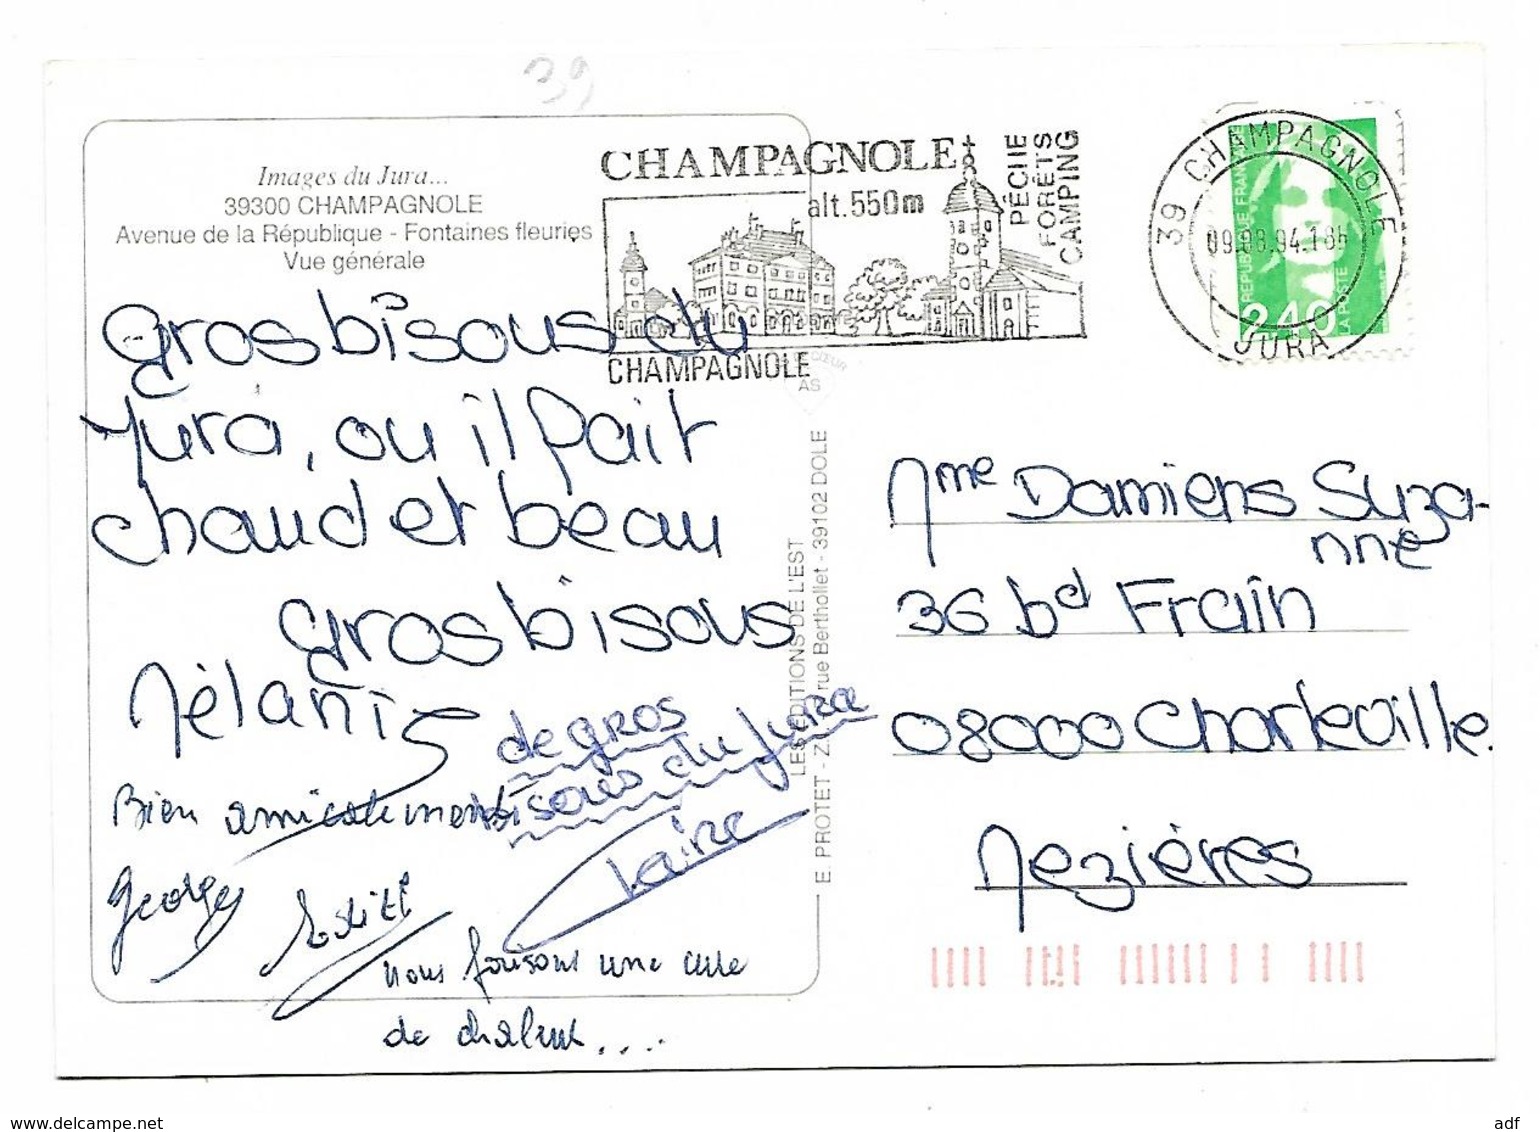 39
Images du Jura...
39300 CHAMPAGNOLE
Avenue de la République - Fontaines fleuries
Vue générale
CHAMPAGNOLE
alt.550m
PÊCHE
FORÊTS
CAMPING
CHAMPAGNOLE
39 CHAMPAGNOLE
09.08.94.18H
JURA
REPUBLIQUE FRANÇAISE
2,40
LA POSTE
gros bisous du
Jura, ou il fait
chaud et beau
gros bisous
Mélanie
de gros
bisous du Jura
Claire
Bien amicalement
Georges
Edith
nous faisons une cure
de chaleur....
CŒUR
AS
LES EDITIONS DE L'EST
E. PROTET - Z.I. rue Berthollet - 39102 DOLE
Mme Damiens Suza-
nne
36 bd Frain
08000 Charleville.
Mezières
www.delcampe.net
adf